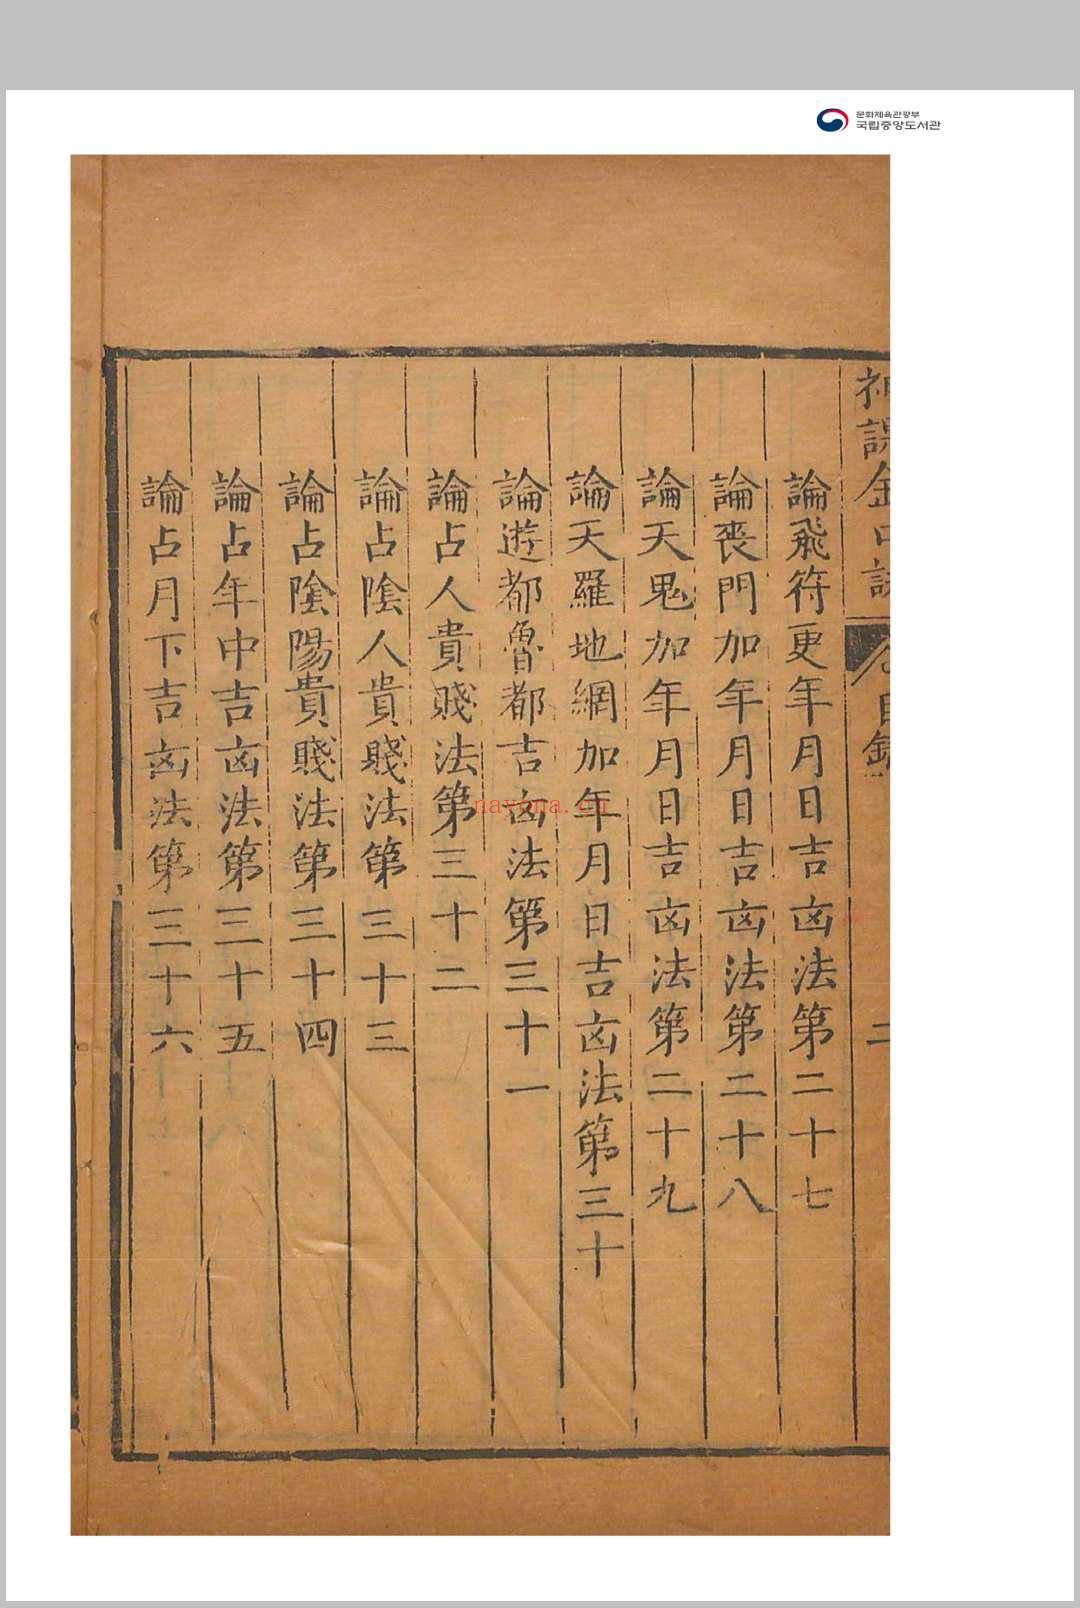 문화체육관광부
국립중앙도서관
神課金口訣
卷 目錄
二
論飛符更年月日吉凶法第二十七
論喪門加年月日吉凶法第二十八
論天鬼加年月日吉凶法第二十九
論天羅地網加年月日吉凶法第三十
論遊都魯都吉凶法第三十一
論占人貴賤法第三十二
論占陰人貴賤法第三十三
論占陰陽貴賤法第三十四
論占年中吉凶法第三十五
論占月下吉凶法第三十六
nayona.cn